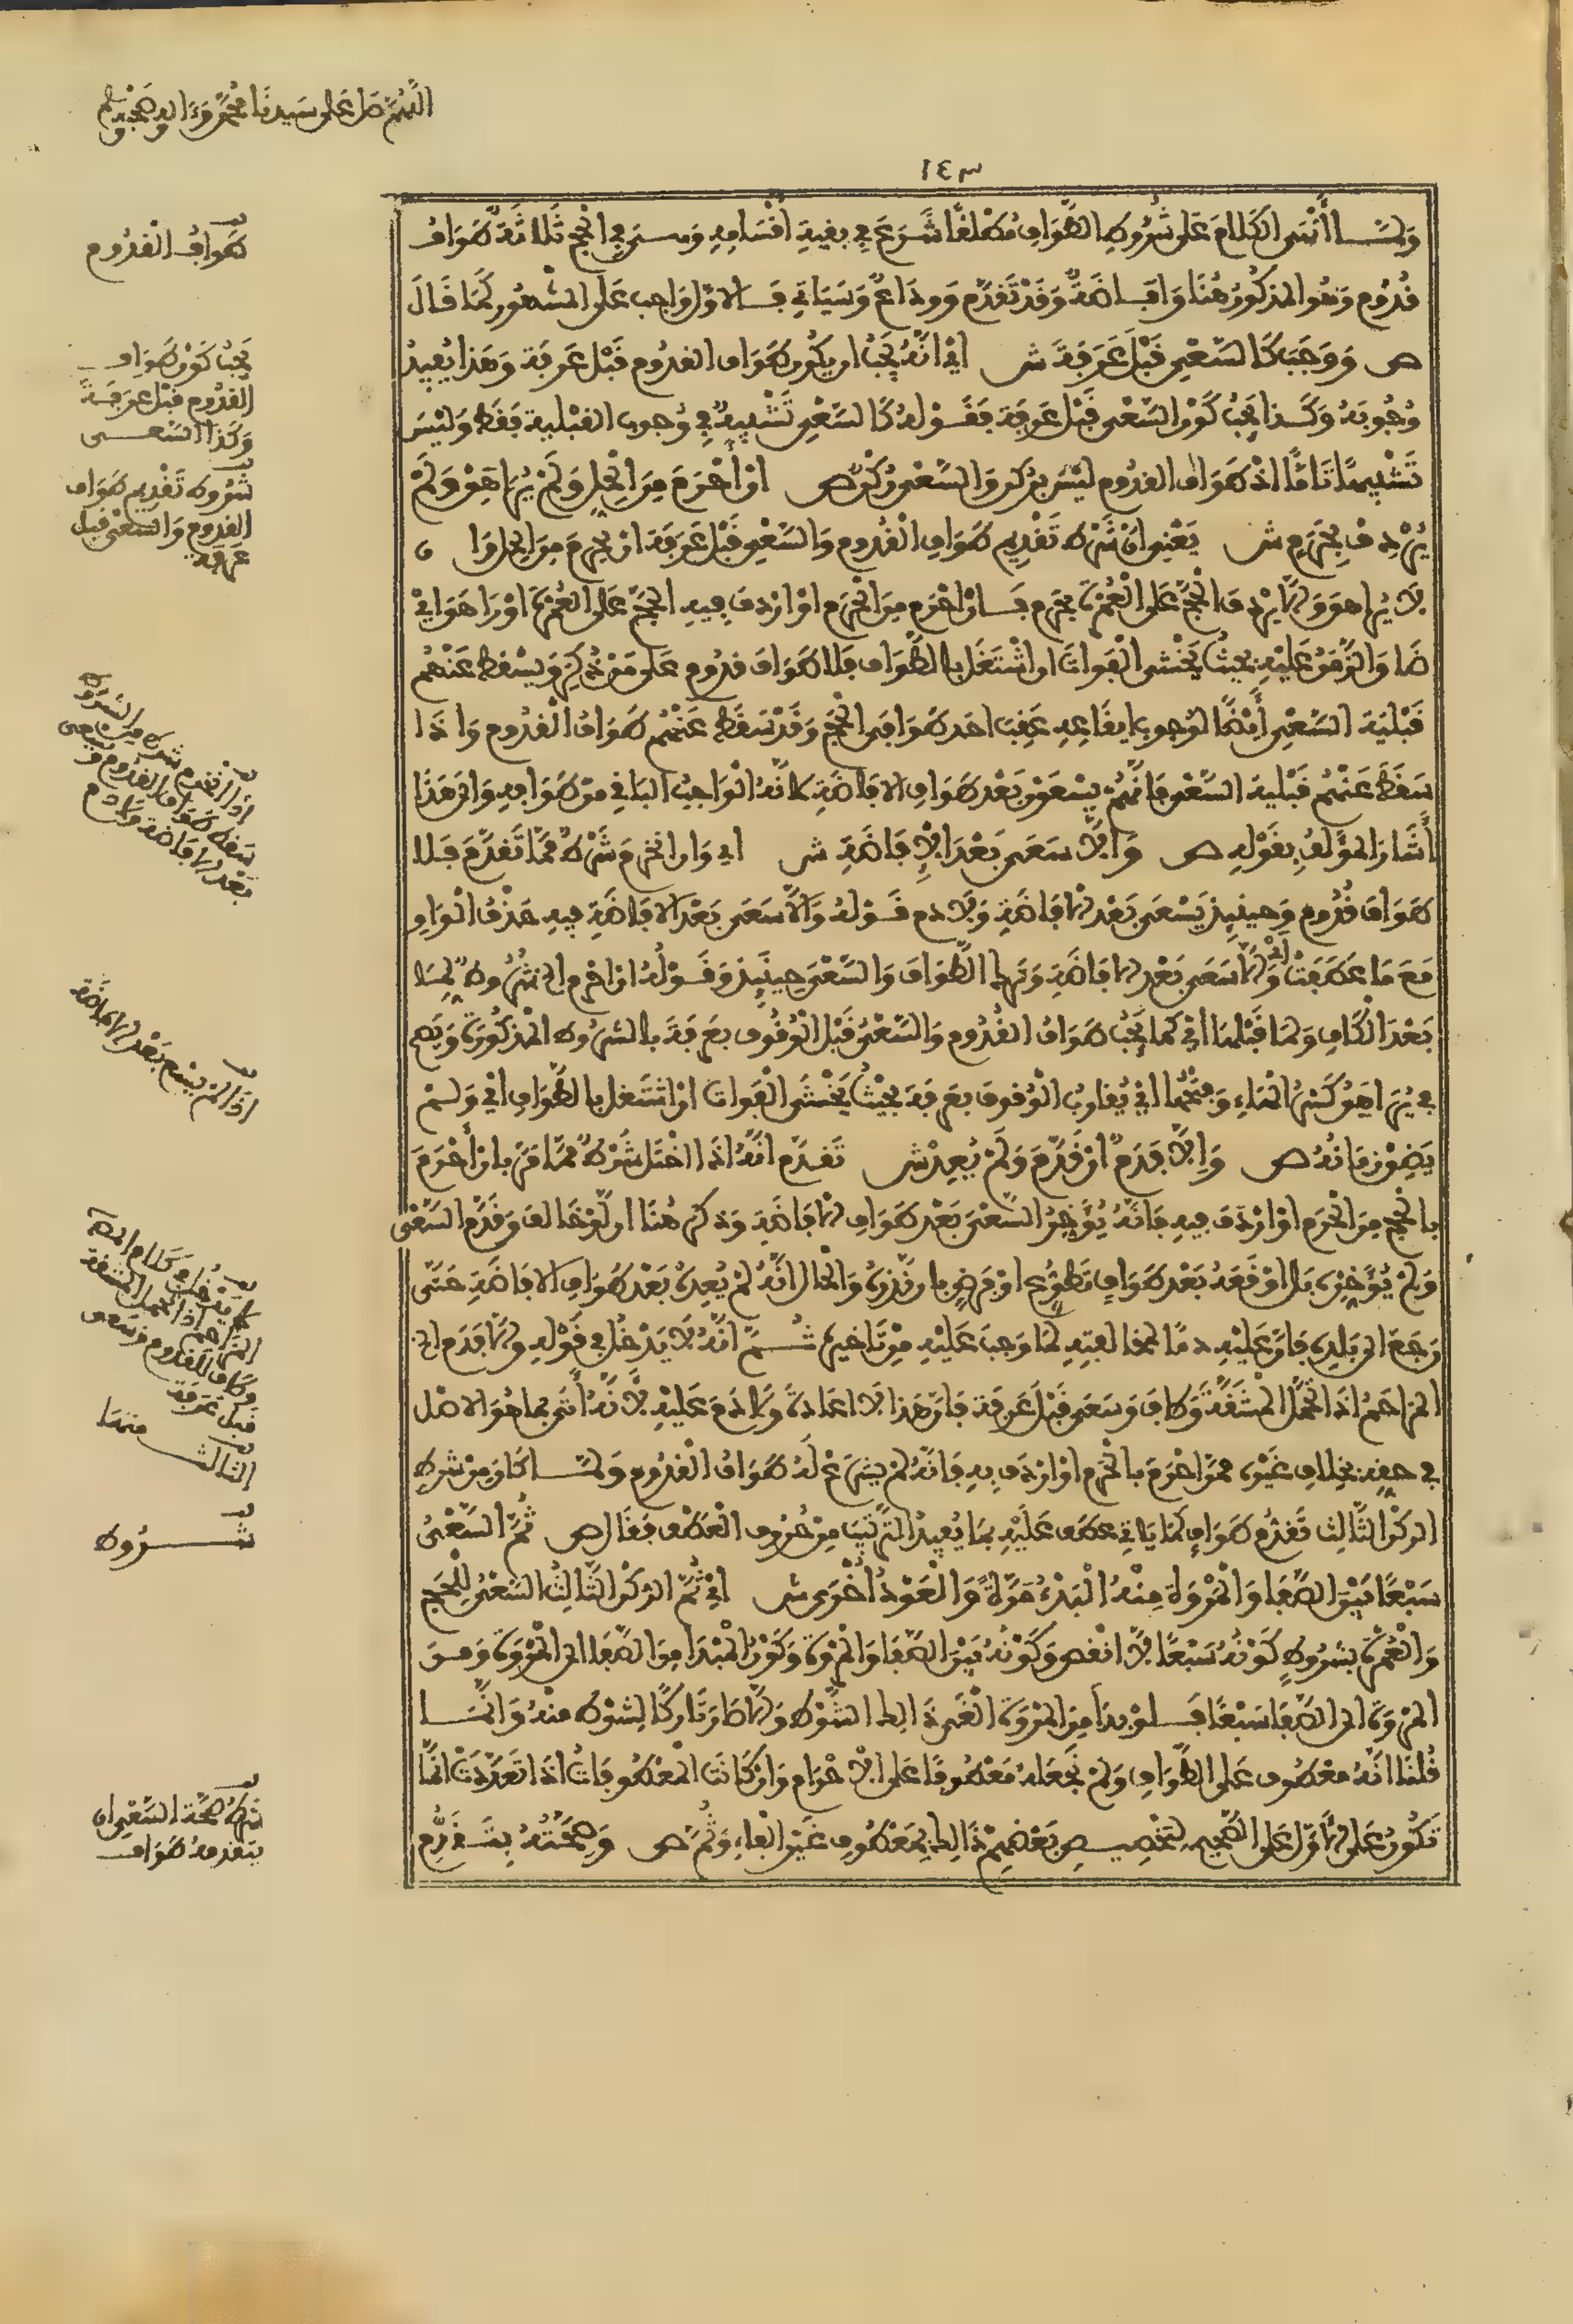 اللهم صل على سيدنا محمد وءاله وصحبه وسلم
١٤٣
ولما أنهى الكلام على شروط الطواف مطلقا شرع في بقية أقسامه وهي في الحج ثلاثة طواف
قدوم وهو المذكور هنا وافاضة وقد تقدم ووداع وسياتي فالاول واجب على المشهور كما قال
ص ووجب كالسعي قبل عرفة ش اي انه يجب ان يكون طواف القدوم قبل عرفة وهذا يفيد
وجوبه وكذا يجب كون السعي قبل عرفة فقوله كالسعي تشبيه في وجوب القبلية فقط وليس
تشبيها تاما اذ طواف القدوم ليس بركن والسعي ركن ص ان أحرم من الحل ولم يراهق ولم
يردف بحرم ش يعني ان شرط تقديم طواف القدوم والسعي قبل عرفة ان يحرم من الحل وا ن
لا يراهق ولا يردف الحج على العمرة بحرم فان احرم من الحرم او اردف فيه الحج على العمرة او راهق اي
ضاق الزمن عليه بحيث يخشى الفوات ان اشتغل بالطواف فلا طواف قدوم على من ذكر ويسقط عنهم
قبلية السعي أيضا لوجوب ايقاعه عقب احد طوافي الحج وقد سقط عنهم طواف القدوم واذا
سقط عنهم قبلية السعي فانهم يسعون بعد طواف الافاضة لانه الواجب الباقي من طوافه والى هذا
أشار المؤلف بقوله ص والا سعى بعد الافاضة ش اي وان انخرم شرط مما تقدم فلا
طواف قدوم وحينئذ يسعى بعد الافاضة ولا دم فقوله والا سعى بعد الافاضة فيه حذف الواو
مع ما عطفت اي والا سعى بعد الافاضة وترك الطواف والسعي حينئذ وقوله ان احرم الخ شروط لما
بعد الكاف ولما قبلها اي كما يجب طواف القدوم والسعي قبل الوقوف بعرفة بالشروط المذكورة ويصح
في يراهق كسر الهاء وفتحها اي يقارب الوقوف بعرفة بحيث يخشى الفوات ان اشتغل بالطواف اي ولم
يضق زمانه ص والا فدم ان قدم ولم يعد ش تقدم انه اذا اختل شرط مما مر بان أحرم
بالحج من الحرم او اردف فيه فانه يؤخر السعي بعد طواف الافاضة وذكر هنا ان لو خالف وقدم السعي
ولم يؤخره بل اوقعه بعد طواف تطوع او فرض بان نذره والحال انه لم يعده بعد طواف الافاضة حتى
رجع الى بلده فان عليه دما لمخالفته لما وجب عليه من تاخيره ثم انه لا يدخل في قوله والا فدم الخ
المراهق اذا تحمل المشقة وطاف وسعى قبل عرفة فان هذا لا اعادة ولا دم عليه لانه أتى بما هو الاصل
في حقه بخلاف غيره ممن احرم بالحرم او اردف به فانه لم يشرع له طواف القدوم ولما كان من شرط
الركن الثالث تقدم طواف كما ياتي عطف عليه بما يفيد الترتيب من حروف العطف فقال ص ثم السعي
سبعا بين الصفا والمروة منه البدء مرة والعود أخرى ش اي ثم الركن الثالث السعي للحج
والعمرة بشروط كونه سبعا لا انقص وكونه بين الصفا والمروة وكون المبدا من الصفا الى المروة ومن
المروة الى الصفا سبعا فلو بدا من المروة الغى ذالك الشوط والا صار تاركا لشوط منه وانما
قلنا انه معطوف على الطواف ولم نجعله معطوفا على الاحرام وان كانت المعطوفات اذا تعددت انما
تكون على الاول على الصحيح لتخصيص بعضهم ذالك بمعطوف غير الفاء وثم ص وصحته بتقدم
طواف القدوم
يجب كون طواف
القدوم قبل عرفة
وكذا السعي
شروط تقديم طواف
القدوم والسعي قبل
عرفة
اذا انخرم شرط من الشروط
سقط طواف القدوم ويسعى
بعد الافاضة ولا دم
اذا لم يسع بعد الافاضة
لا يدخل في كلام المص
المراهق اذا تحمل المشقة
وطاف للقدوم وسعى
قبل عرفة
الثالث منها
شروط
شرط صحة السعي ان
يتقدمه طواف